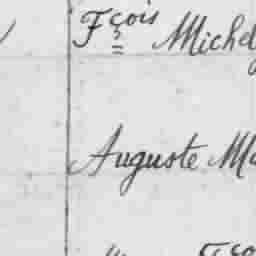 Fçois Michel
Auguste Ma